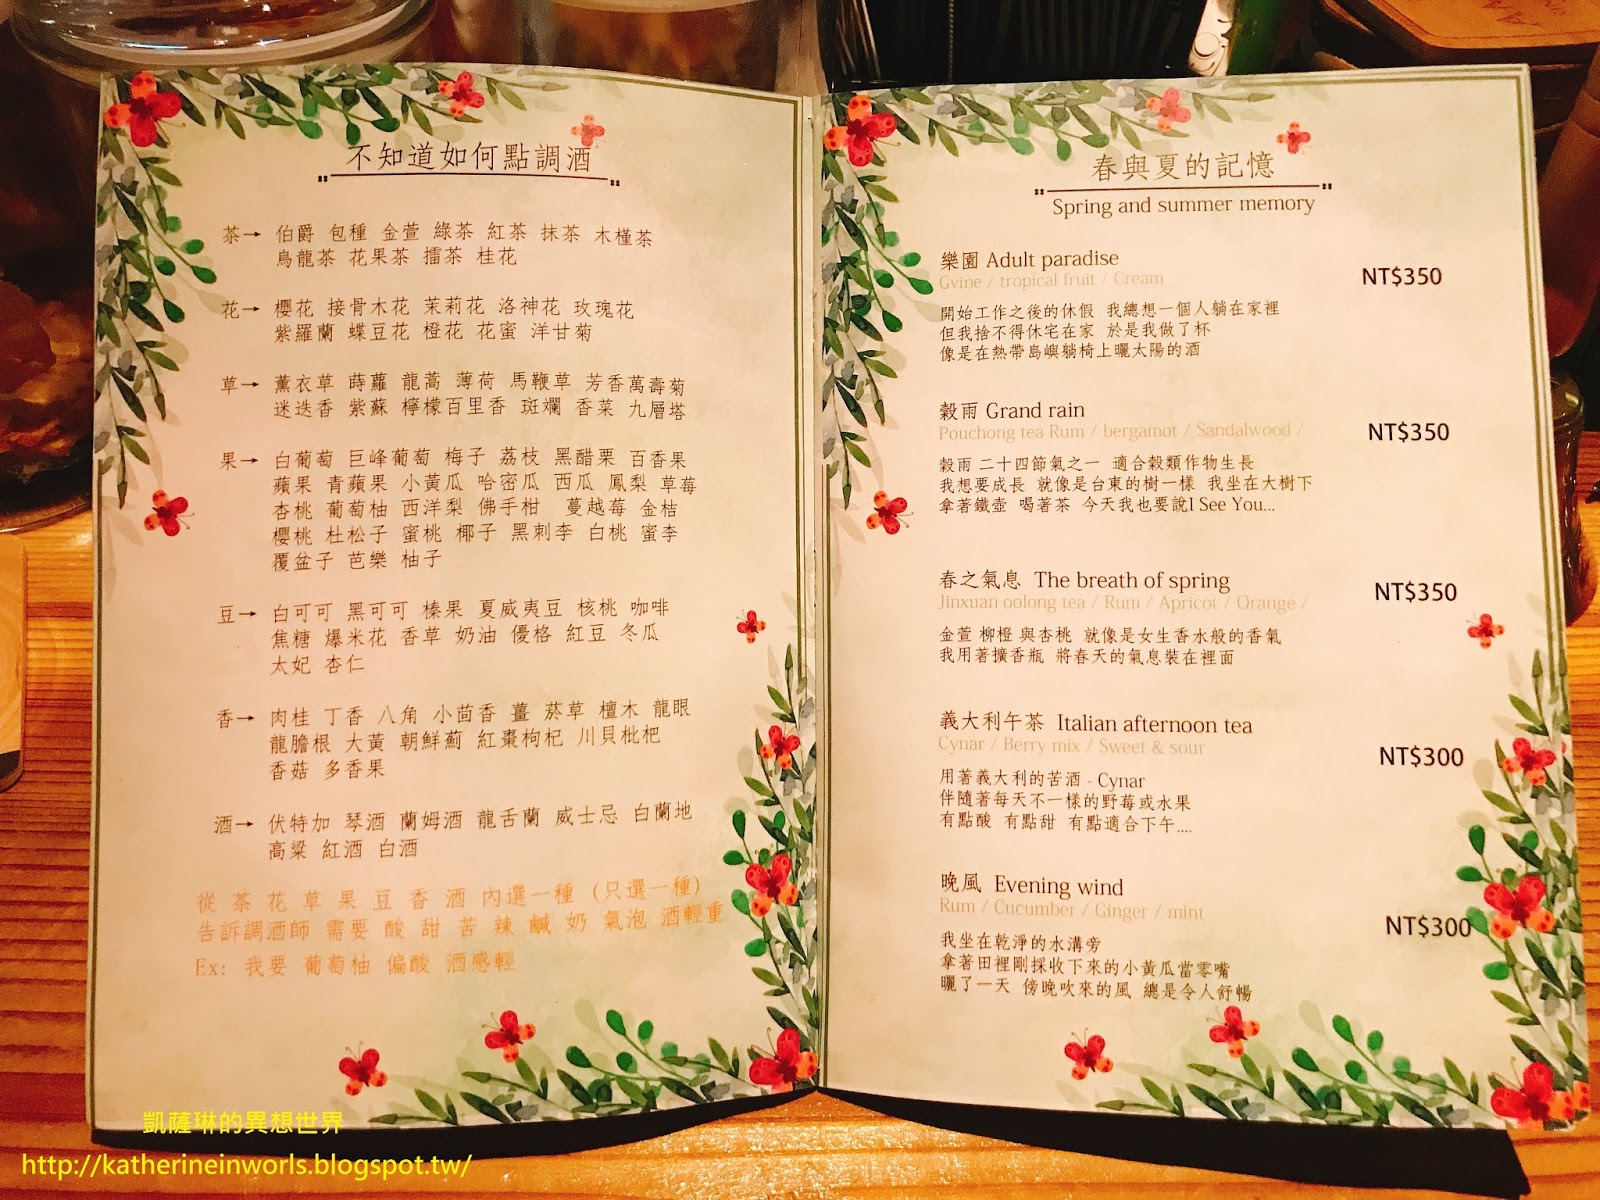 不知道如何點調酒
茶→ 伯爵 包種 金萱 綠茶 紅茶 抹茶 木槿茶
烏龍茶 花果茶 擂茶 桂花
花→ 櫻花 接骨木花 茉莉花 洛神花 玫瑰花
紫羅蘭 蝶豆花 橙花 花蜜 洋甘菊
草→ 薰衣草 蒔蘿 龍蒿 薄荷 馬鞭草 芳香萬壽菊
迷迭香 紫蘇 檸檬百里香 斑斕 香菜 九層塔
果→ 白葡萄 巨峰葡萄 梅子 荔枝 黑醋栗 百香果
蘋果 青蘋果 小黃瓜 哈密瓜 西瓜 鳳梨 草莓
杏桃 葡萄柚 西洋梨 佛手柑 蔓越莓 金桔
櫻桃 杜松子 蜜桃 椰子 黑刺李 白桃 蜜李
覆盆子 芭樂 柚子
豆→ 白可可 黑可可 榛果 夏威夷豆 核桃 咖啡
焦糖 爆米花 香草 奶油 優格 紅豆 冬瓜
太妃 杏仁
香→ 肉桂 丁香 八角 小茴香 薑 菸草 檀木 龍眼
龍膽根 大黃 朝鮮薊 紅棗枸杞 川貝枇杷
香菇 多香果
酒→ 伏特加 琴酒 蘭姆酒 龍舌蘭 威士忌 白蘭地
高粱 紅酒 白酒
從 茶 花 草 果 豆 香 酒 內選一種 (只選一種)
告訴調酒師 需要 酸 甜 苦 辣 鹹 奶 氣泡 酒輕重
Ex: 我要 葡萄柚 偏酸 酒感輕
春與夏的記憶
Spring and summer memory
樂園 Adult paradise
NT$350
Gvine / tropical fruit / Cream
開始工作之後的休假 我總想一個人躺在家裡
但我捨不得休宅在家 於是我做了杯
像是在熱帶島嶼躺椅上曬太陽的酒
穀雨 Grand rain
NT$350
Pouchong tea Rum / bergamot / Sandalwood /
穀雨 二十四節氣之一 適合穀類作物生長
我想要成長 就像是台東的樹一樣 我坐在大樹下
拿著鐵壺 喝著茶 今天我也要說I See You...
春之氣息 The breath of spring
NT$350
Jinxuan oolong tea / Rum / Apricot / Orange /
金萱 柳橙 與杏桃 就像是女生香水般的香氣
我用著擴香瓶 將春天的氣息裝在裡面
義大利午茶 Italian afternoon tea
NT$300
Cynar / Berry mix / Sweet & sour
用著義大利的苦酒 - Cynar
伴隨著每天不一樣的野莓或水果
有點酸 有點甜 有點適合下午....
晚風 Evening wind
NT$300
Rum / Cucumber / Ginger / mint
我坐在乾淨的水溝旁
拿著田裡剛採收下來的小黃瓜當零嘴
曬了一天 傍晚吹來的風 總是令人舒暢
凱薩琳的異想世界
http://katherineinworls.blogspot.tw/